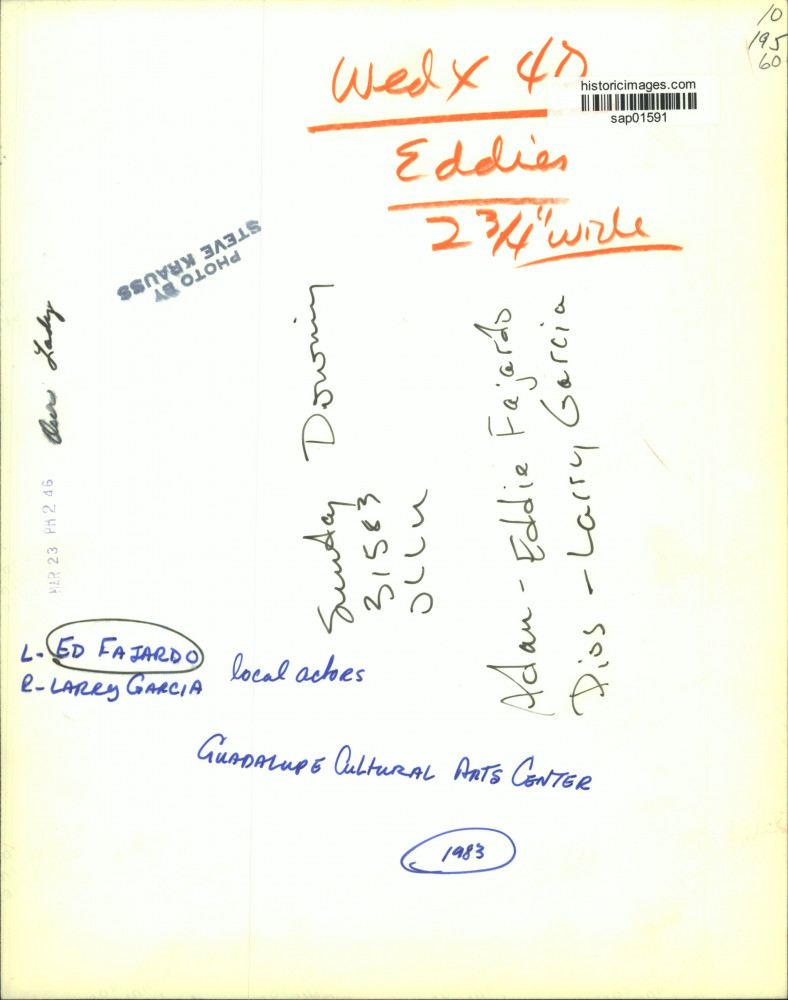 10
195
60
Wed x
historicimages.com
sap01591
Eddies
2 3/4" wide
PHOTO BY
STEVE KRAUSS
Lady
MAR 23 PM 2 46
Sunday Downing
31583
OLLU
Adan - Eddie Fajardo
Dios - Larry Garcia
L- ED FAJARDO
R- LARRY GARCIA
local actors
GUADALUPE CULTURAL ARTS CENTER
1983